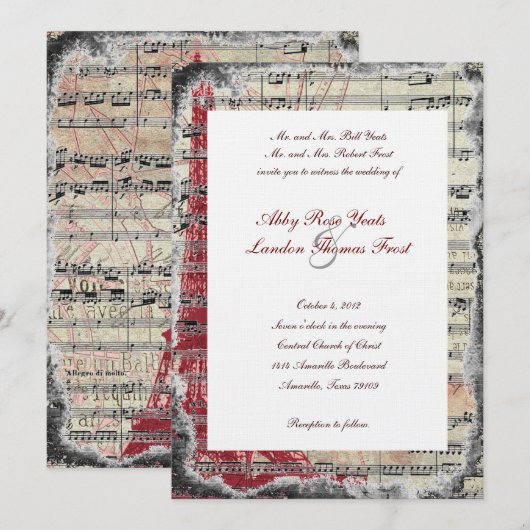 Mr. and Mrs. Bill Yeats
Mr. and Mrs. Robert Frost
invite you to witness the wedding of
Abby Rose Yeats
&
Landon Thomas Frost
October 4, 2012
Seven o'clock in the evening
Central Church of Christ
1414 Amarillo Boulevard
Amarillo, Texas 79109
Reception to follow.
Allegro di molto.